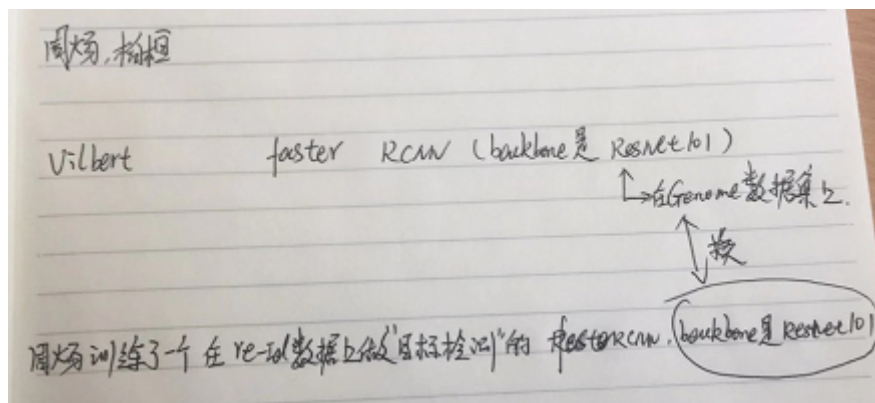 周炀,杨桓
Vilbert faster RCNN (backbone是 ResNet101)
在Genome数据集上.
换
周炀训练了一个在re-id数据上做"目标检测"的 fasterRCNN. backbone是ResNet101